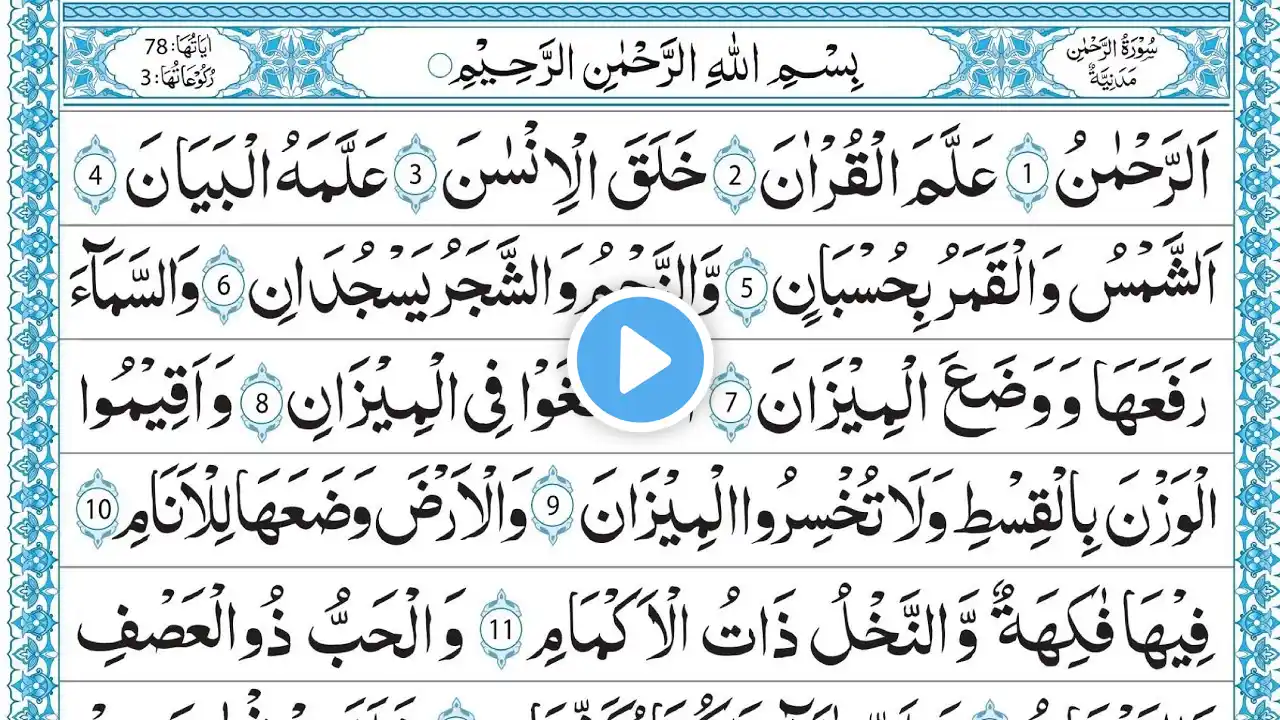 سُوْرَةُ الرَّحْمٰنِ مَدَنِيَّةٌ
بِسْمِ اللهِ الرَّحْمٰنِ الرَّحِيْمِ
اٰيَاتُهَا: 78
رُكُوْعَاتُهَا: 3
اَلرَّحْمٰنُ 1 عَلَّمَ الْقُرْاٰنَ 2 خَلَقَ الْاِنْسٰنَ 3 عَلَّمَهُ الْبَيَانَ 4
اَلشَّمْسُ وَالْقَمَرُ بِحُسْبَانٍ 5 وَّالنَّجْمُ وَالشَّجَرُ يَسْجُدَانِ 6 وَالسَّمَآءَ
رَفَعَهَا وَوَضَعَ الْمِيْزَانَ 7 فِى الْمِيْزَانِ 8 وَاَقِيْمُوا
الْوَزْنَ بِالْقِسْطِ وَلَا تُخْسِرُوا الْمِيْزَانَ 9 وَالْاَرْضَ وَضَعَهَا لِلْاَنَامِ 10
فِيْهَا فٰكِهَةٌ وَّالنَّخْلُ ذَاتُ الْاَكْمَامِ 11 وَالْحَبُّ ذُو الْعَصْفِ